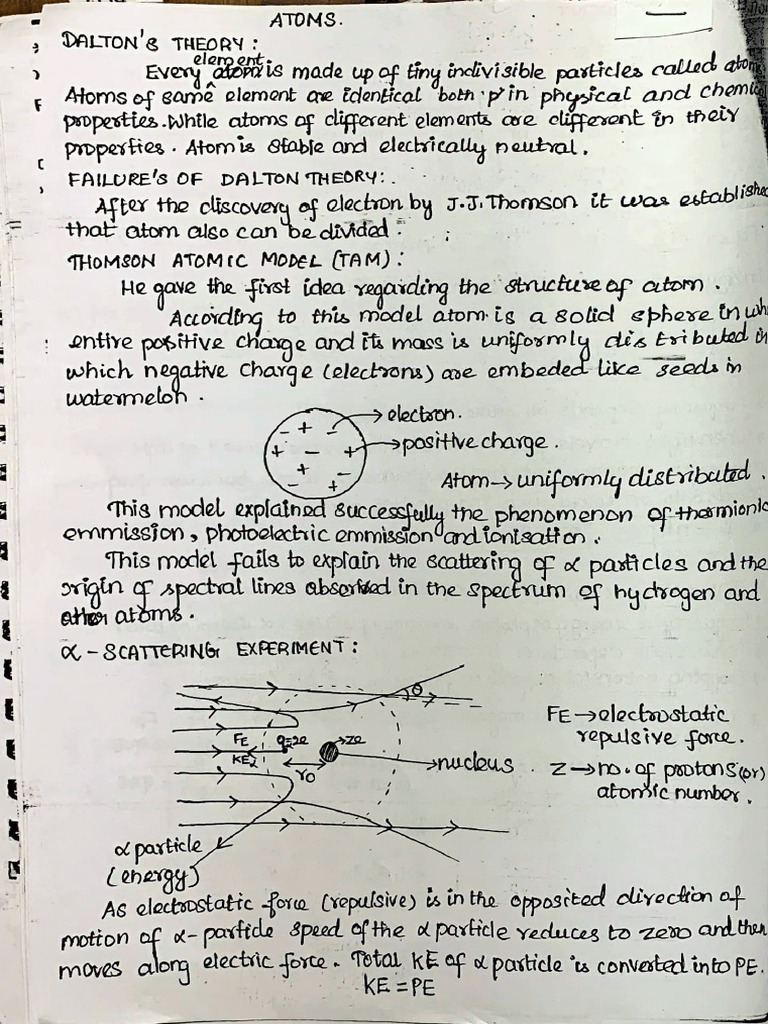 ATOMS.
DALTON'S THEORY :
element
Every atom is made up of tiny indivisible particles called atom
Atoms of same element are identical both in physical and chemic
properties. While atoms of different elements are different in their
properties. Atom is stable and electrically neutral.
FAILURE'S OF DALTON THEORY:.
After the discovery of electron by J.J. Thomson it was establishe
that atom also can be divided.
THOMSON ATOMIC MODEL (TAM) :
He gave the first idea regarding the structure of atom.
According to this model atom is a solid sphere in wh
entire positive charge and its mass is uniformly distributed in
which negative charge (electrons) are embeded like seeds in
watermelon.
→ electron.
→ positive charge.
Atom → uniformly distributed.
This model explained successfully the phenomenon of thermionic
emmission, photoelectric emmission and ionisation.
This model fails to explain the scattering of α particles and the
origin of spectral lines absorbed in the spectrum of hydrogen and
other atoms.
α - SCATTERING EXPERIMENT :
θ
FE → electrostatic
repulsive force.
FE q=2e ze
KE
r0
→ nucleus.
Z → no. of protons (or)
atomic number.
α particle
(energy)
As electrostatic force (repulsive) is in the opposited direction of
motion of α- particle speed of the α particle reduces to zero and then
moves along electric force. Total KE of α particle is converted into PE.
KE = PE